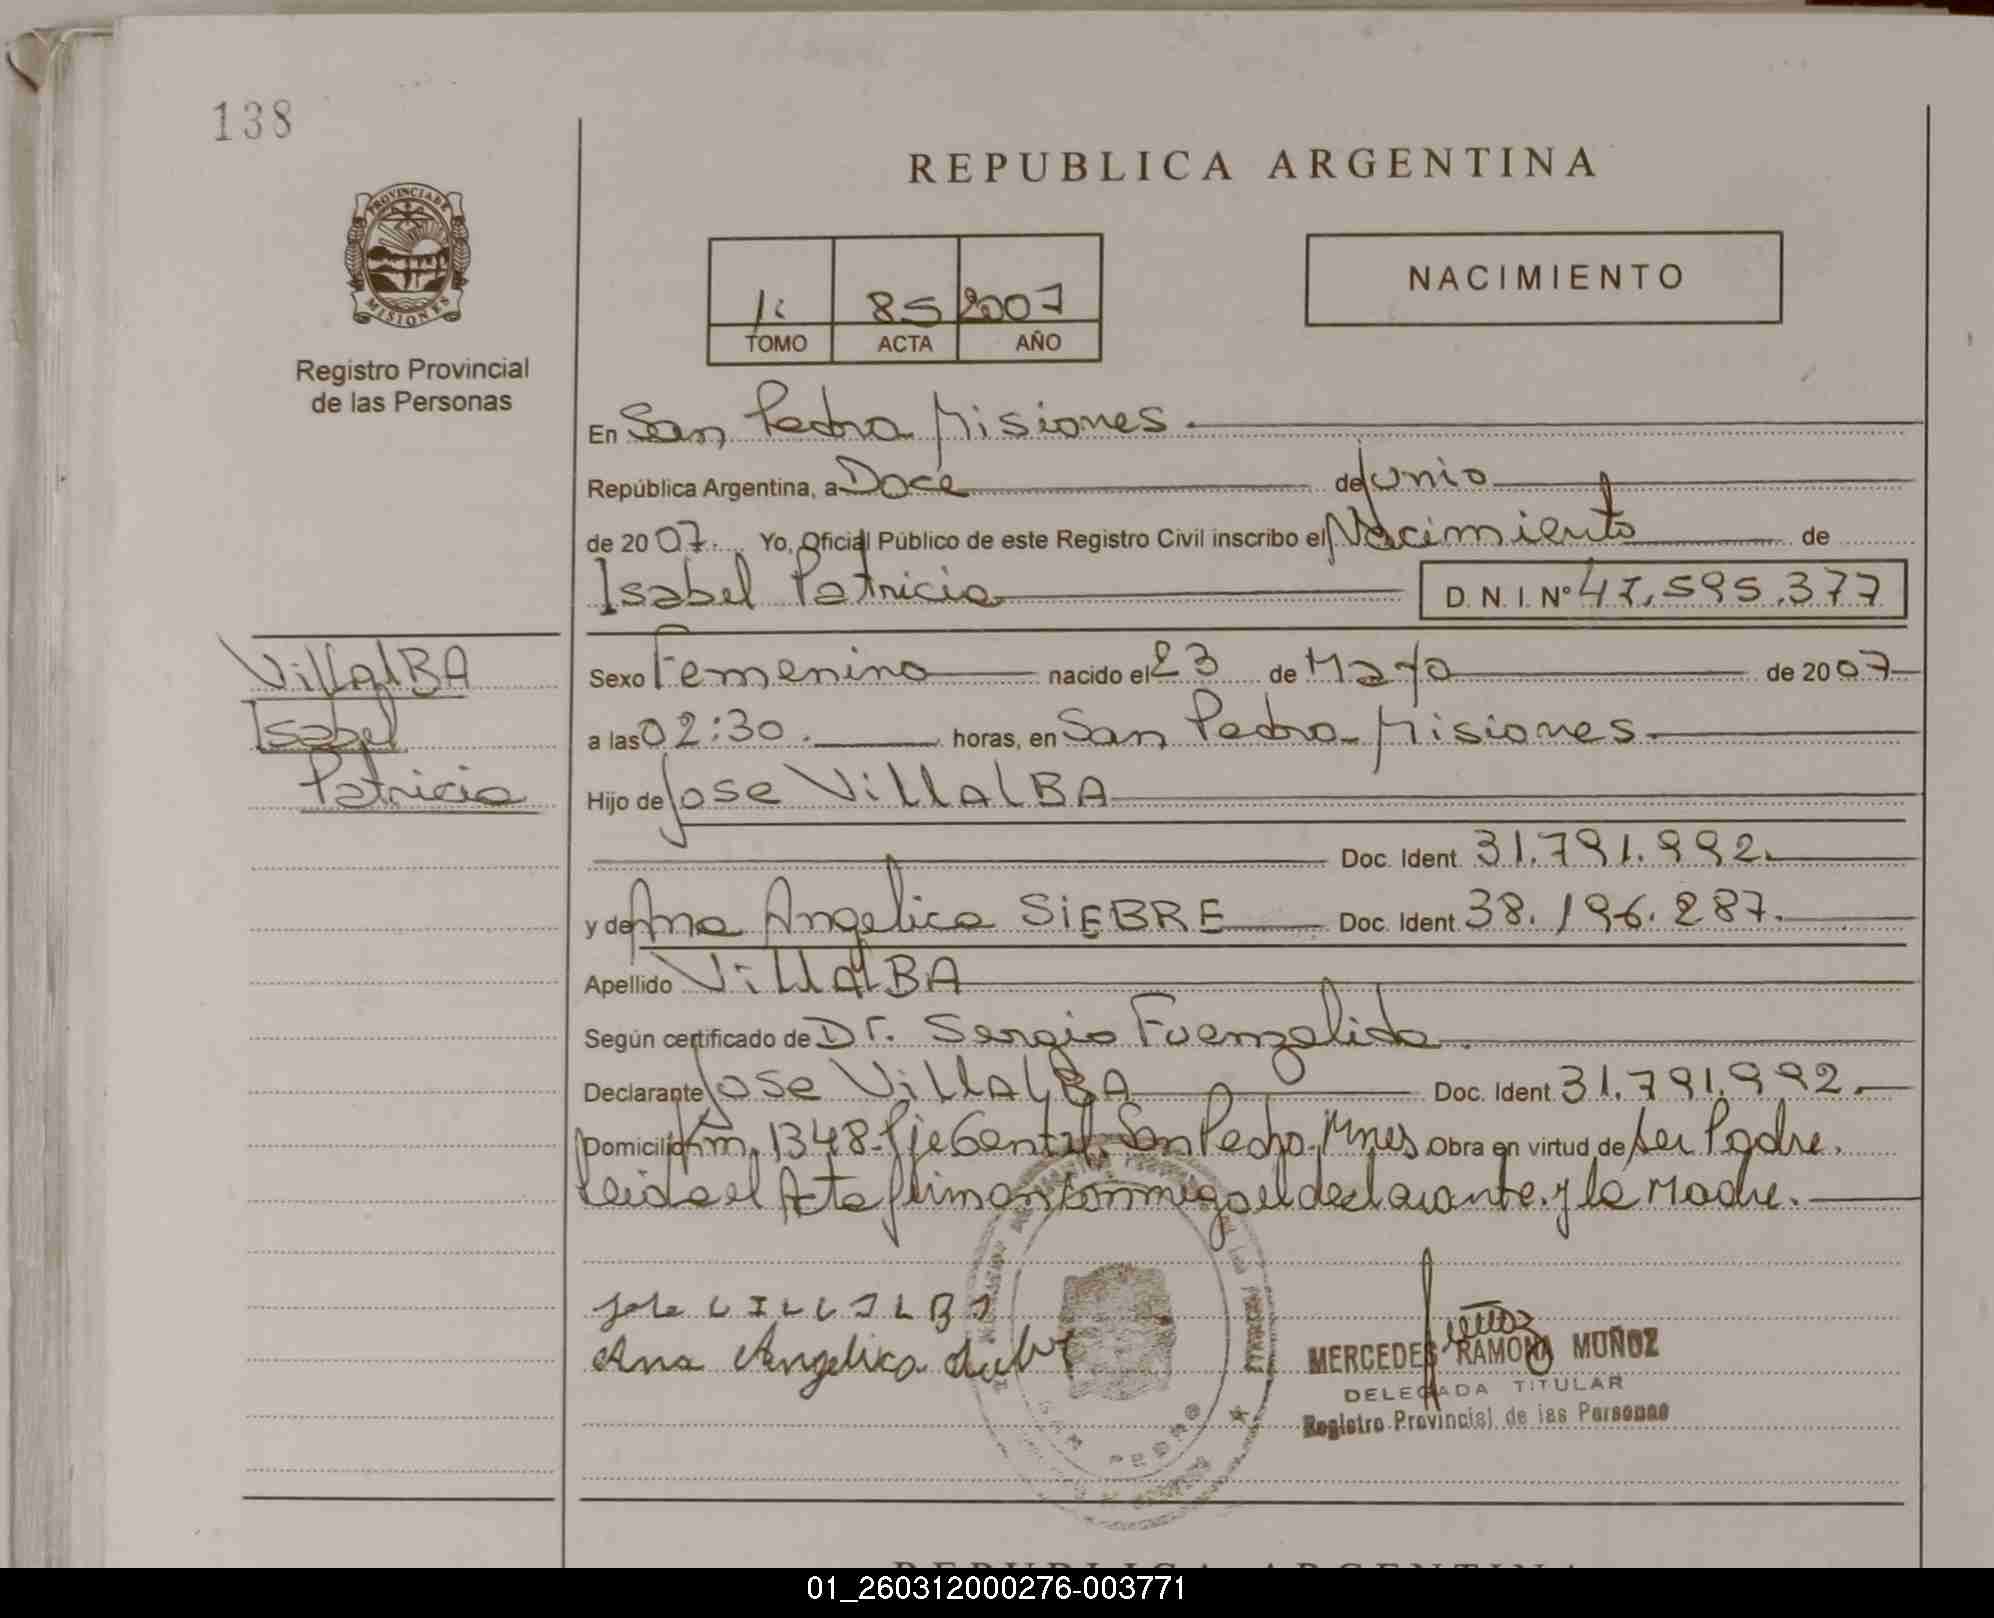 138
REPUBLICA ARGENTINA
PROVINCIA DE
MISIONES
NACIMIENTO
1: 85 2007
TOMO ACTA AÑO
Registro Provincial
de las Personas
En San Pedro Misiones
República Argentina, a Doce de Junio
de 2007. Yo, Oficial Público de este Registro Civil inscribo el Nacimiento de
Isabel Patricia D. N. I. Nº 47.595.377
VillalBA
Isabel
Patricia
Sexo Femenino nacido el 23 de Mayo de 2007
a las 02:30. horas, en San Pedro Misiones
Hijo de Jose VillAlBA
Doc. Ident. 31.791.992.
y de Ana Angelica SiEBRE Doc. Ident. 38.196.287.
Apellido VillAlBA
Según certificado de Dr. Sergio Fuenzalida.
Declarante Jose VillAlBA Doc. Ident. 31.791.992.
Domicilio Km. 1348-Pje Gentil, San Pedro-Mnes Obra en virtud de ser Padre.
Leida el Acta firman conmigo el declarante. y la Madre.
Jose VILLALBA
Ana Angelica
MERCEDES RAMONA MUÑOZ
DELEGADA TITULAR
Registro Provincial de las Personas
SAN PEDRO
REPUBLICA ARGENTINA
01_260312000276-003771